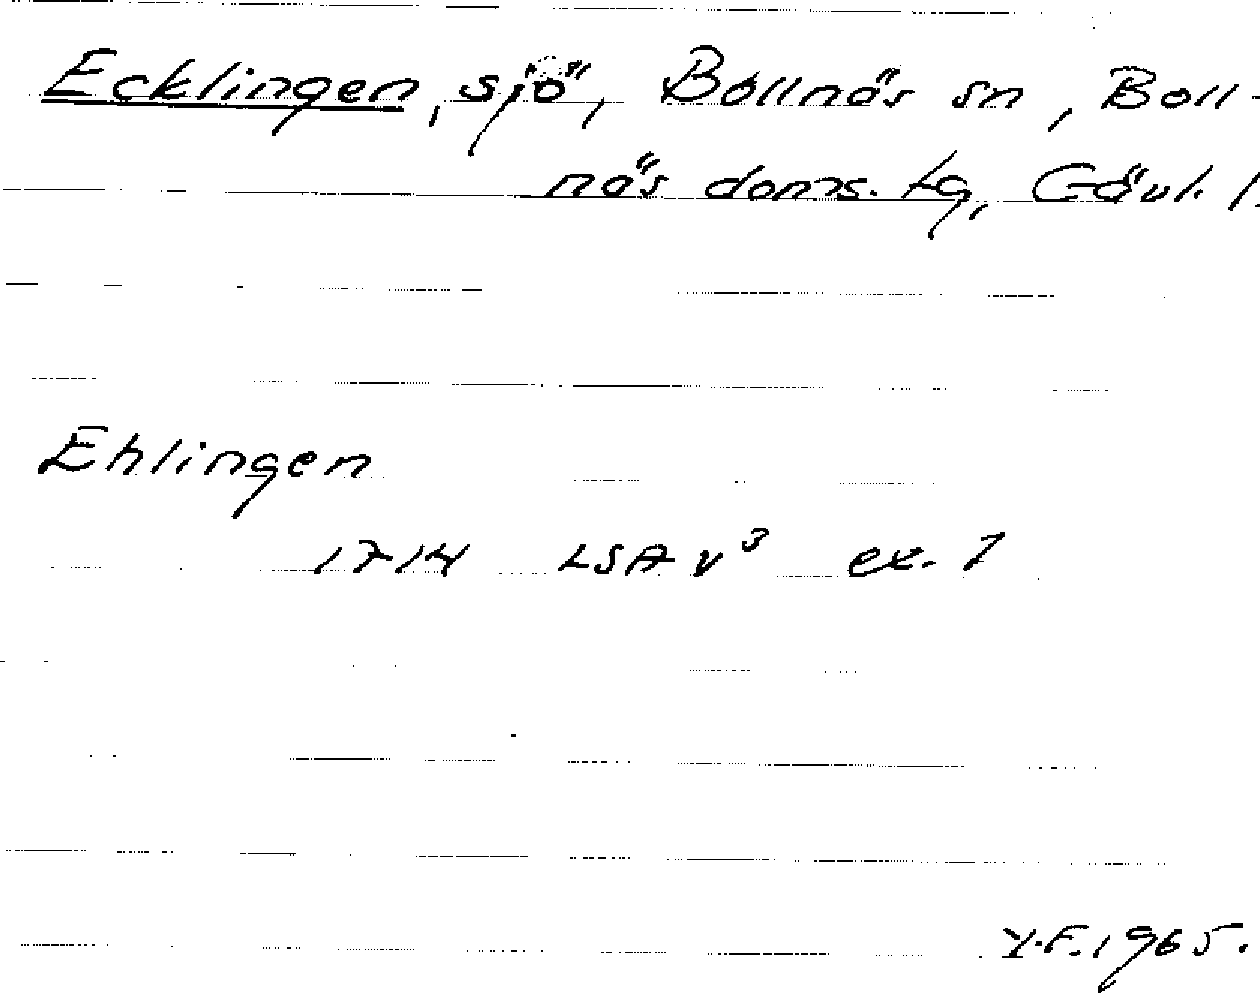 Ecklingen, sjö, Bollnäs sn, Boll-
näs doms. tg, Gävl. l.
Ehlingen
1714 LSA v³ ex. 1
Y.F. 1965.